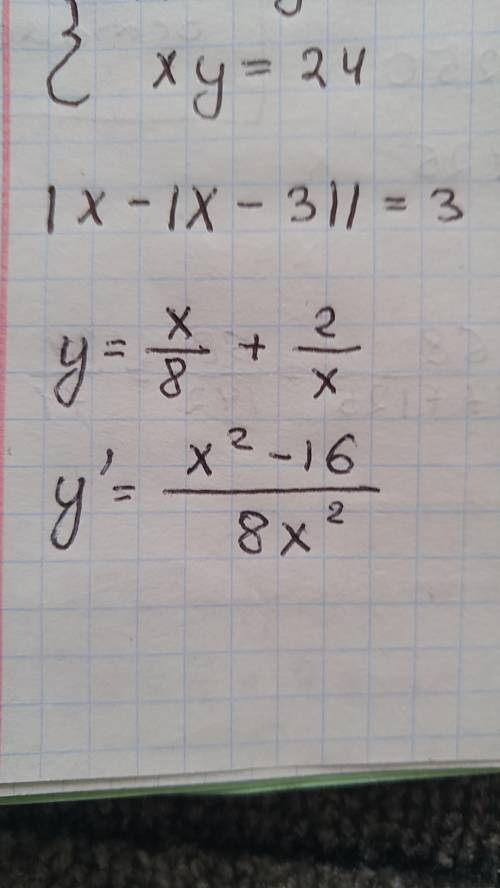 { xy = 24
|x - |x - 3|| = 3
y = x/8 + 2/x
y' = (x² - 16)/(8x²)